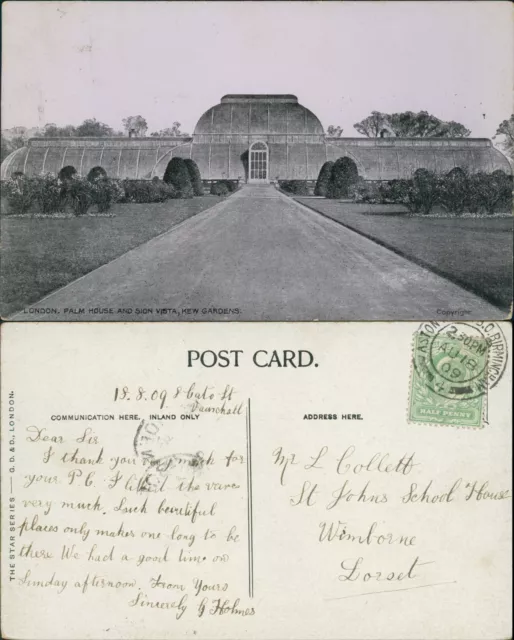 LONDON. PALM HOUSE AND SION VISTA, KEW GARDENS.
Copyright
POST CARD.
18.8.09 8 Cato St
Vauxhall
COMMUNICATION HERE. INLAND ONLY
ADDRESS HERE.
THE STAR SERIES — G. D. & D., LONDON.
Dear Sir
I thank you very much for
your P.C. I liked the
very much. Such beautiful
places only makes one long to be
there We had a good time on
Sunday afternoon. From Yours
Sincerely G Holmes
Mr L Collett
St Johns School House
Wimborne
Dorset
ASTON BIRMINGHAM
2 30PM
AU 18
09
HALF PENNY